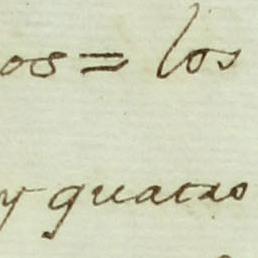 os = los
y quatro